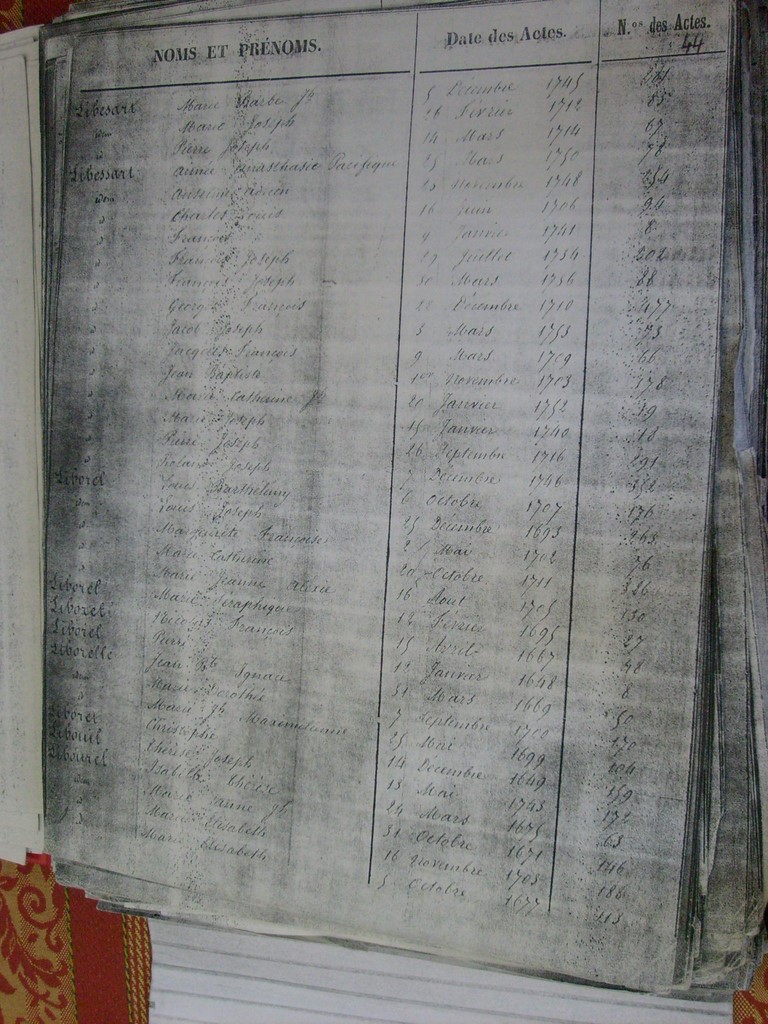 NOMS ET PRÉNOMS. Date des Actes. N.os des Actes.
44
Libessart Marie Barbe Jh 5 Décembre 1745
idem Marie Joseph 26 Février 1712 85
" Pierre Joseph 14 Mars 1714 67
Libessart Anne Anasthasie Pacifique 25 Mars 1750 78
idem Antoine Adrien 23 Novembre 1748 254
" Charles Louis 16 Juin 1706 94
" François 9 Janvier 1741 8
" François Joseph 29 Juillet 1734 202
" François Joseph 30 Mars 1736 88
" Georges François 22 Décembre 1710 477
" Jacob Joseph 3 Mars 1753 73
" Jacques François 9 Mars 1709 66
" Jean Baptiste 1er Novembre 1703 178
" Marie Catherine Jh 20 Janvier 1752 19
" Marie Joseph 15 Janvier 1740 13
" Pierre Joseph 26 Septembre 1716 291
" Joseph 7 Décembre 1746 352
Liborel Louis Barthélemy 6 Octobre 1707 176
" Louis Joseph 25 Décembre 1693 263
" Marguerite Françoise 2 Mai 1702 76
" Marie Catherine 20 Octobre 1711 326
" Marie Jeanne Alexie 16 Août 1705 130
Liborel Marie Séraphique 12 Février 1695 27
Nicolas François 15 Avril 1667 48
Liborel Pierre 12 Janvier 1648 8
Liborelle Jean Bte Ignace 31 Mars 1669 50
idem Marie Dorothée 7 Septembre 1700 170
" Marie Jh Maximilienne 25 Mai 1699 104
Liboret Christophe 14 Décembre 1649 159
Libouil Thérèse Joseph 13 Mai 1743 172
Libourel Isabelle Thérèse 24 Mars 1675 63
idem Marie Anne Jh 31 Octobre 1671 146
" Marie Elisabeth 16 Novembre 1703 186
" Marie Elisabeth 5 Octobre 1677 113